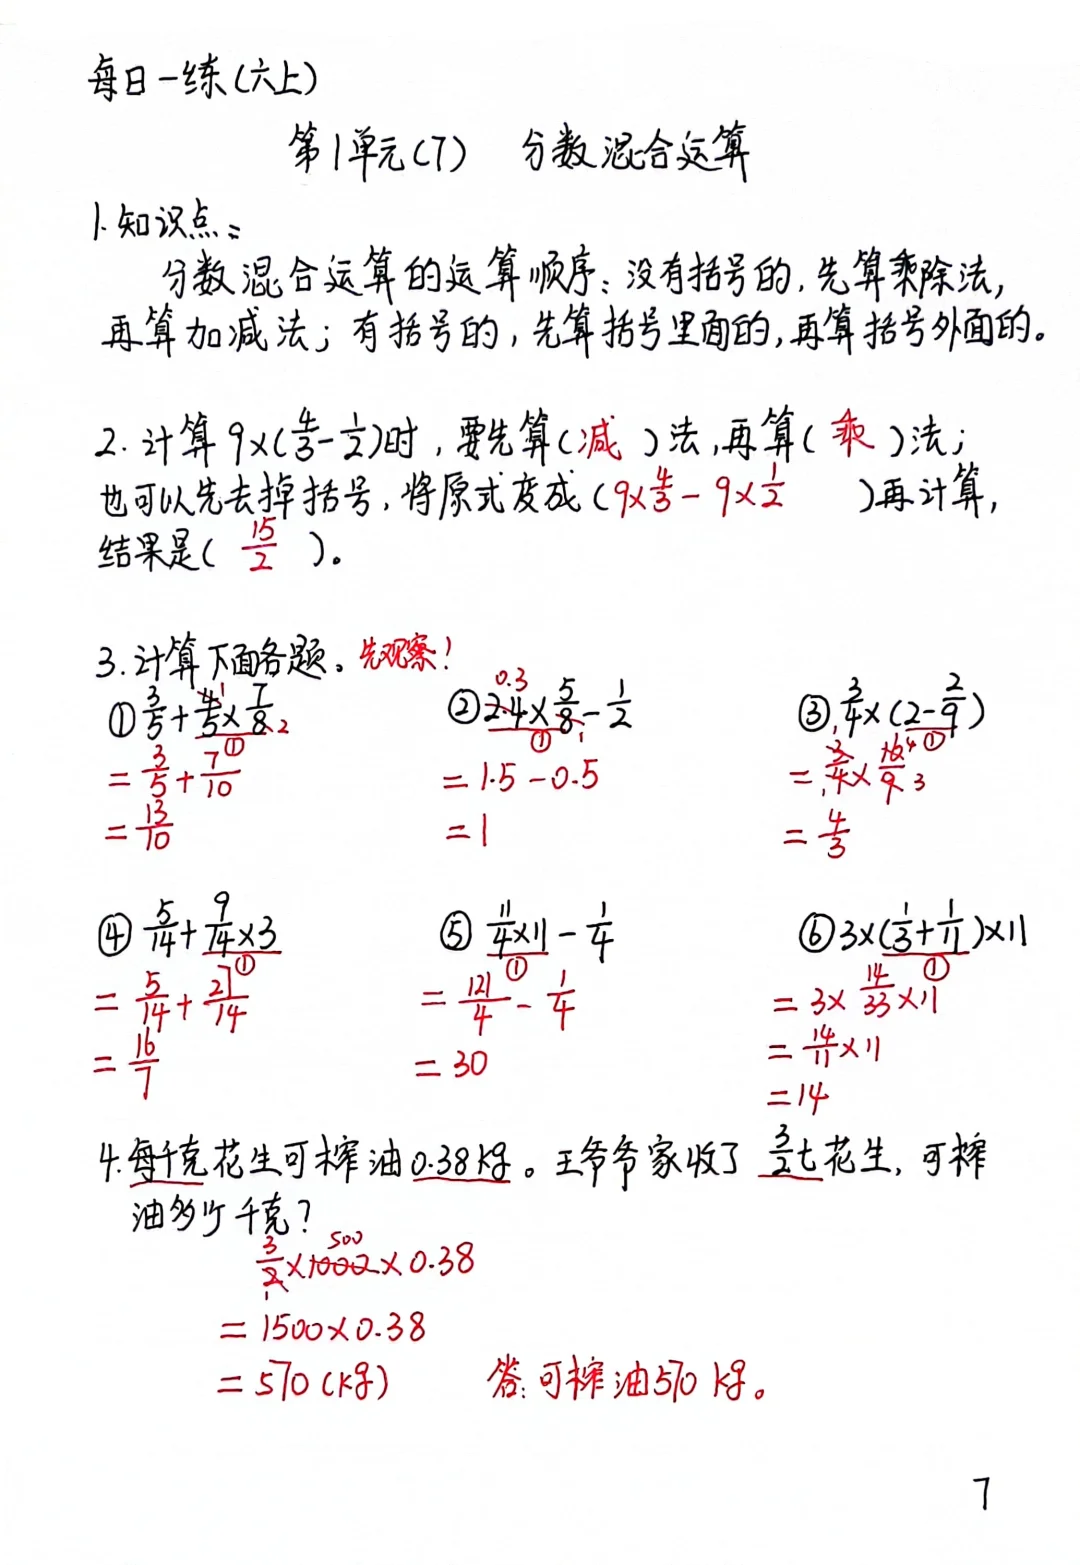 每日一练(六上)
第1单元(7) 分数混合运算
1.知识点:
分数混合运算的运算顺序:没有括号的,先算乘除法,
再算加减法;有括号的,先算括号里面的,再算括号外面的。
2.计算9×(4/3-1/2)时,要先算(减)法,再算(乘)法;
也可以先去掉括号,将原式变成(9×4/3-9×1/2)再计算,
结果是(15/2)。
3.计算下面各题。先观察!
①3/5+4/5×7/8 ②2.4×5/8-1/2 ③3/4×(2-2/9)
=3/5+7/10 =1.5-0.5 =3/4×16/9
=13/10 =1 =4/3
④5/14+9/14×3 ⑤11/4×11-1/4 ⑥3×(1/3+1/11)×11
=5/14+27/14 =121/4-1/4 =3×14/33×11
=16/7 =30 =14/11×11
=14
4.每千克花生可榨油0.38kg。王爷爷家收了3/2t花生,可榨
油多少千克?
3/2×1000×0.38
=1500×0.38
=570(kg) 答:可榨油570kg。
7